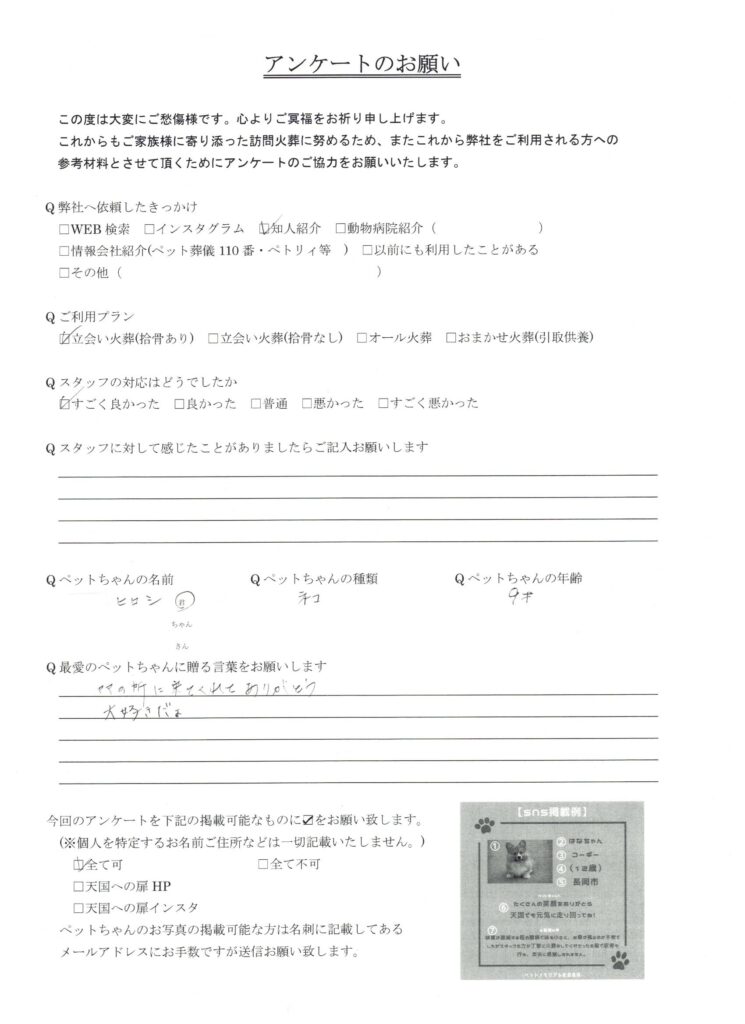 アンケートのお願い
この度は大変にご愁傷様です。心よりご冥福をお祈り申し上げます。
これからもご家族様に寄り添った訪問火葬に努めるため、またこれから弊社をご利用される方への
参考材料とさせて頂くためにアンケートのご協力をお願いいたします。
Q 弊社へ依頼したきっかけ
□WEB 検索 □インスタグラム ☑知人紹介 □動物病院紹介（ ）
□情報会社紹介(ペット葬儀 110 番・ペトリィ等 ) □以前にも利用したことがある
□その他（ ）
Q ご利用プラン
☑立会い火葬(拾骨あり) □立会い火葬(拾骨なし) □オール火葬 □おまかせ火葬(引取供養)
Q スタッフの対応はどうでしたか
☑すごく良かった □良かった □普通 □悪かった □すごく悪かった
Q スタッフに対して感じたことがありましたらご記入お願いします
Q ペットちゃんの名前 Q ペットちゃんの種類 Q ペットちゃんの年齢
ヒロシ 君 ネコ 9才
ちゃん
さん
Q 最愛のペットちゃんに贈る言葉をお願いします
ママの所に来てくれてありがとう
大好きだよ
今回のアンケートを下記の掲載可能なものに☑をお願い致します。
(※個人を特定するお名前ご住所などは一切記載いたしません。)
☑全て可 □全て不可
□天国への扉 HP
□天国への扉インスタ
ペットちゃんのお写真の掲載可能な方は名刺に記載してある
メールアドレスにお手数ですが送信お願い致します。
【sns掲載例】
① ② はなちゃん
③ コーギー
④ (12歳)
⑤ 長岡市
⑥ たくさんの笑顔をありがとう
天国でも元気に走り回ってね!
⑦